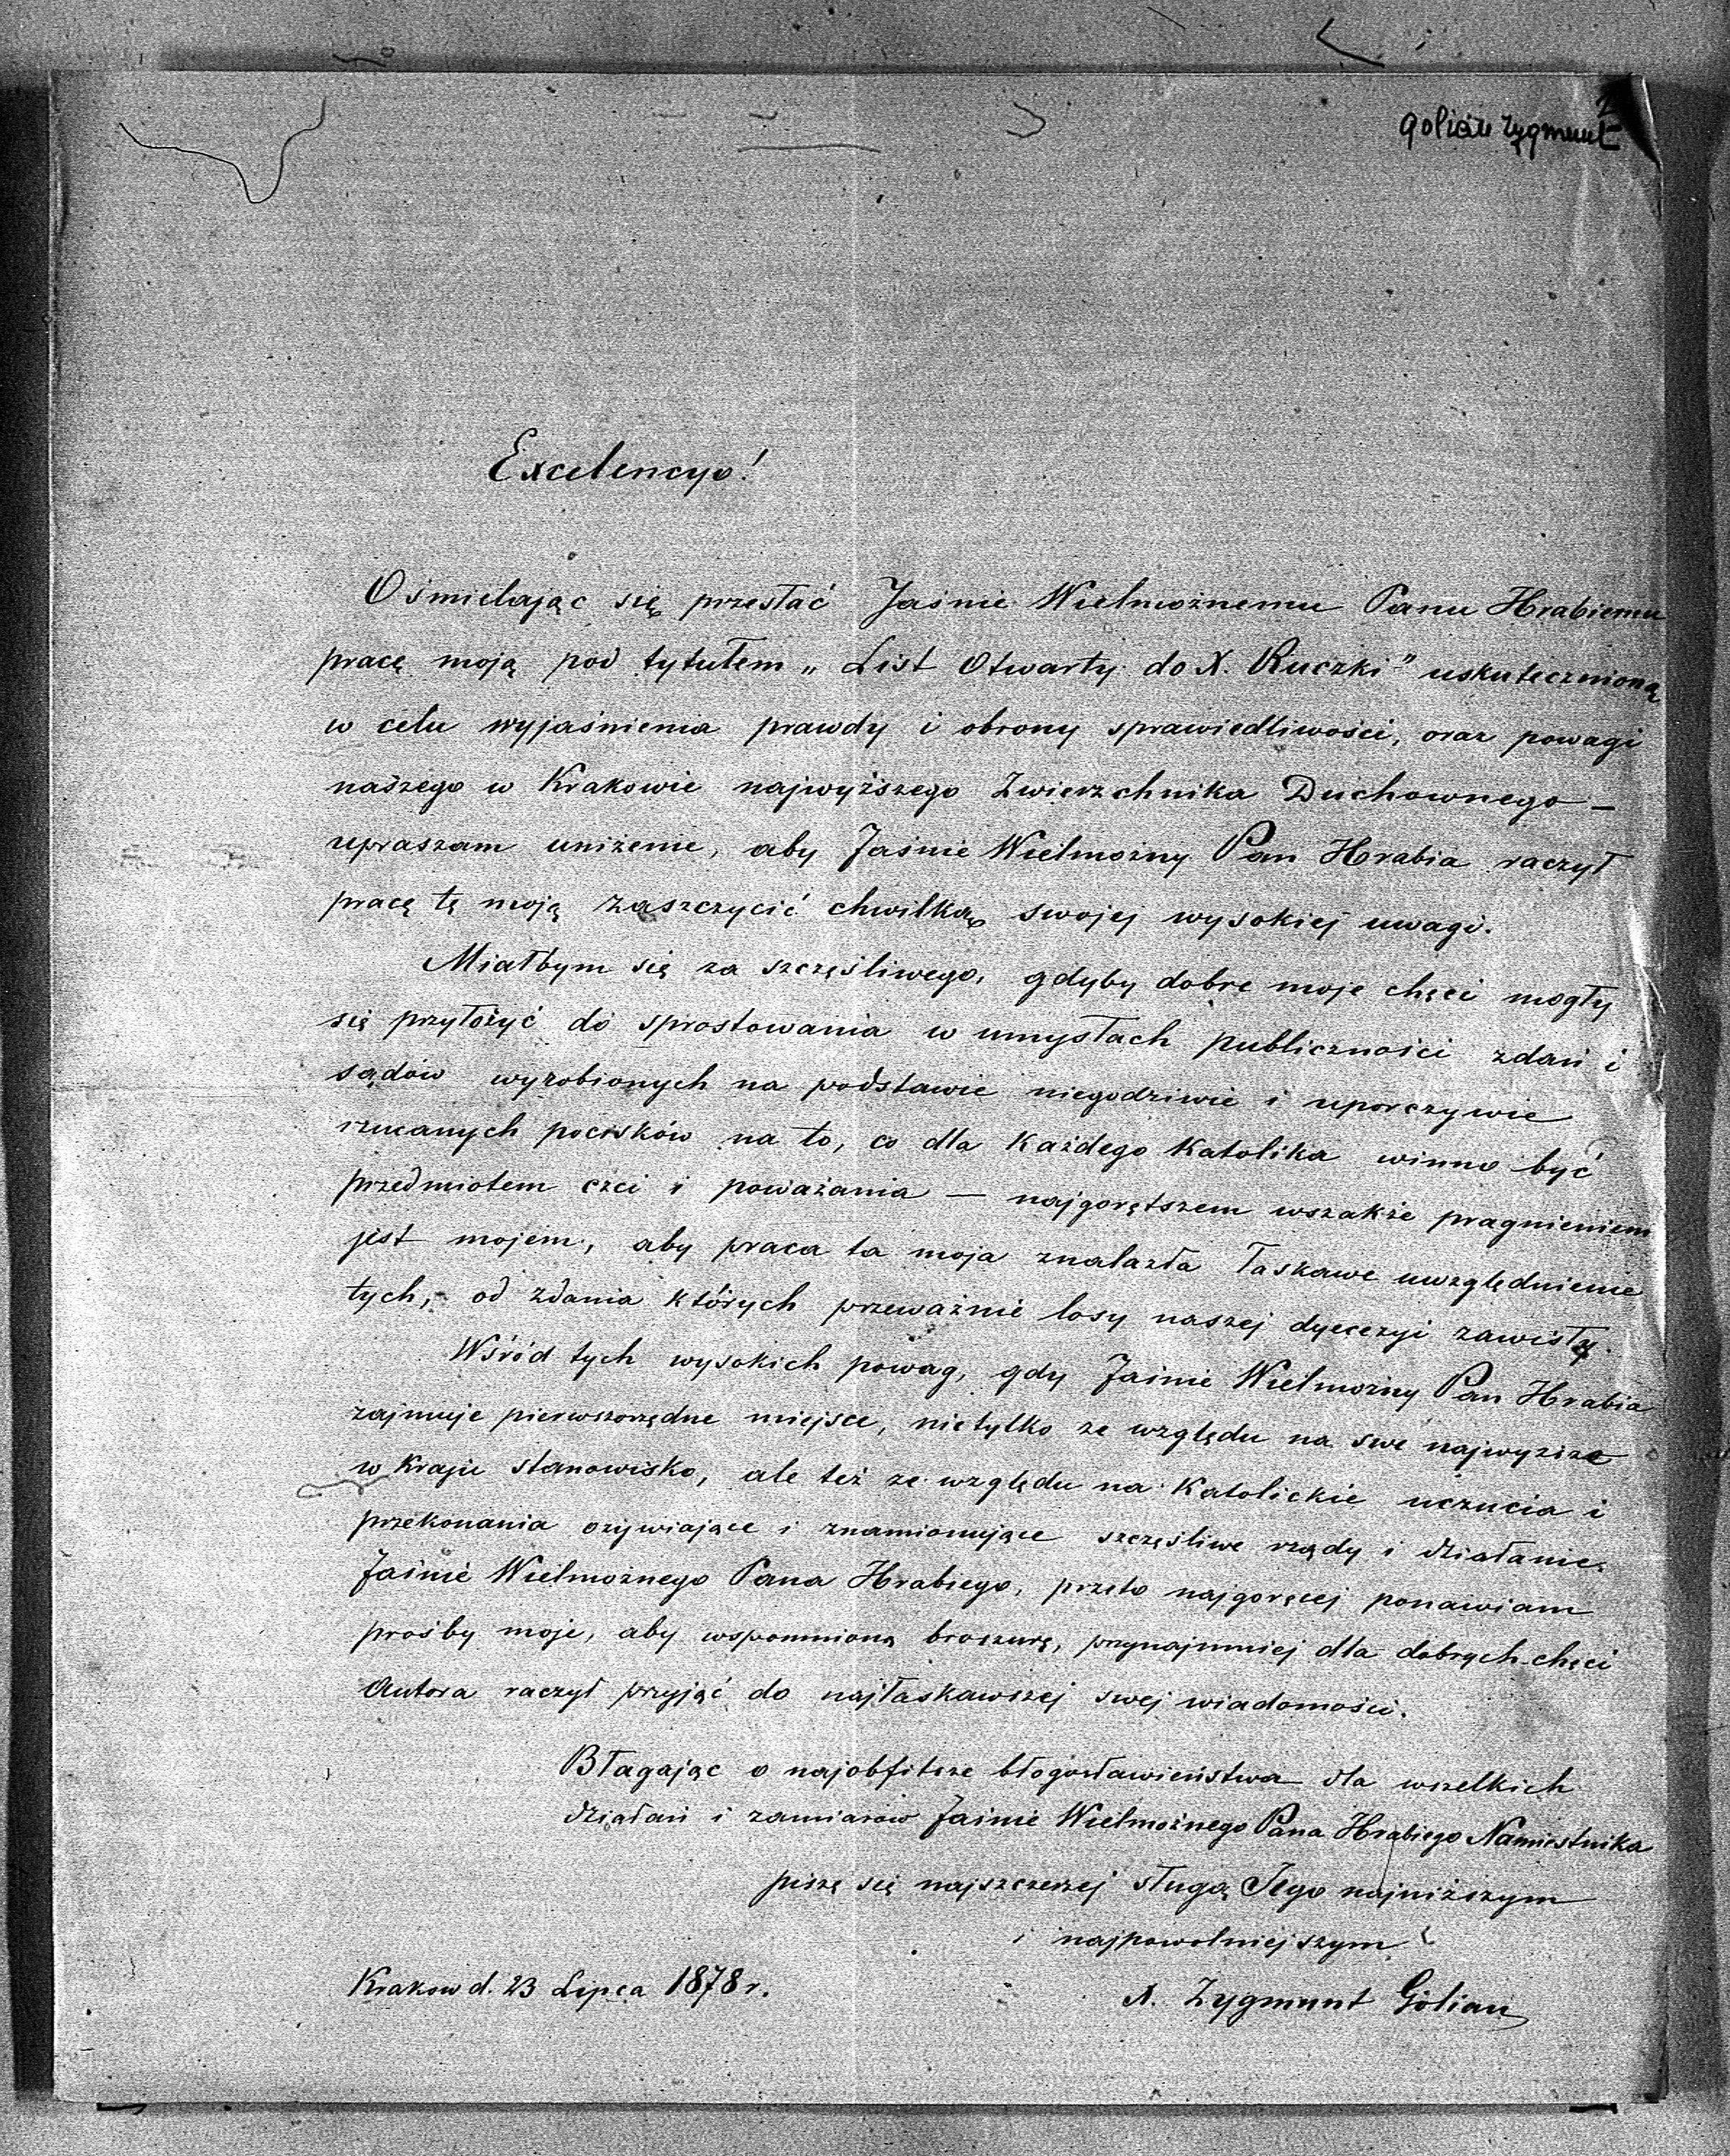 Golian Zygmunt
Excelencyo!
Ośmielając się przesłać Jaśnie Wielmożnemu Panu Hrabiemu
pracę moją pod tytułem „List Otwarty do X. Ruczki" uskutecznioną
w celu wyjaśnienia prawdy i obrony sprawiedliwości, oraz powagi
naszego w Krakowie najwyższego Zwierzchnika Duchownego —
upraszam uniżenie, aby Jaśnie Wielmożny Pan Hrabia raczył
pracę tę moją zaszczycić chwilką swojej wysokiej uwagi.
Miałbym się za szczęśliwego, gdyby dobre moje chęci mogły
się przyłożyć do sprostowania w umysłach publiczności zdań i
sądów wyrobionych na podstawie niegodziwie i uporczywie
rzucanych pocisków na to, co dla każdego Katolika winno być
przedmiotem czci i poważania — najgorętszem wszakże pragnieniem
jest mojem, aby praca ta moja znalazła łaskawe uwzględnienie
tych, od zdania których przeważnie losy naszej dyecezyi zawisły.
Wśród tych wysokich powag, gdy Jaśnie Wielmożny Pan Hrabia
zajmuje pierwszorzędne miejsce, nietylko ze względu na swe najwyższe
w kraju stanowisko, ale też ze względu na Katolickie uczucia i
przekonania ożywiające i znamionujące szczęśliwe rządy i działanie
Jaśnie Wielmożnego Pana Hrabiego, przeto najgoręcej ponawiam
prośby moje, aby wspomnioną broszurę, przynajmniej dla dobrych chęci
Autora raczył przyjąć do najłaskawszej swej wiadomości.
Błagając o najobfitsze błogosławieństwa dla wszelkich
działań i zamiarów Jaśnie Wielmożnego Pana Hrabiego Namiestnika
piszę się najszczerzej sługą Jego najniższym
i najpowolniejszym
Krakow d. 23 Lipca 1878 r.
X. Zygmunt Golian